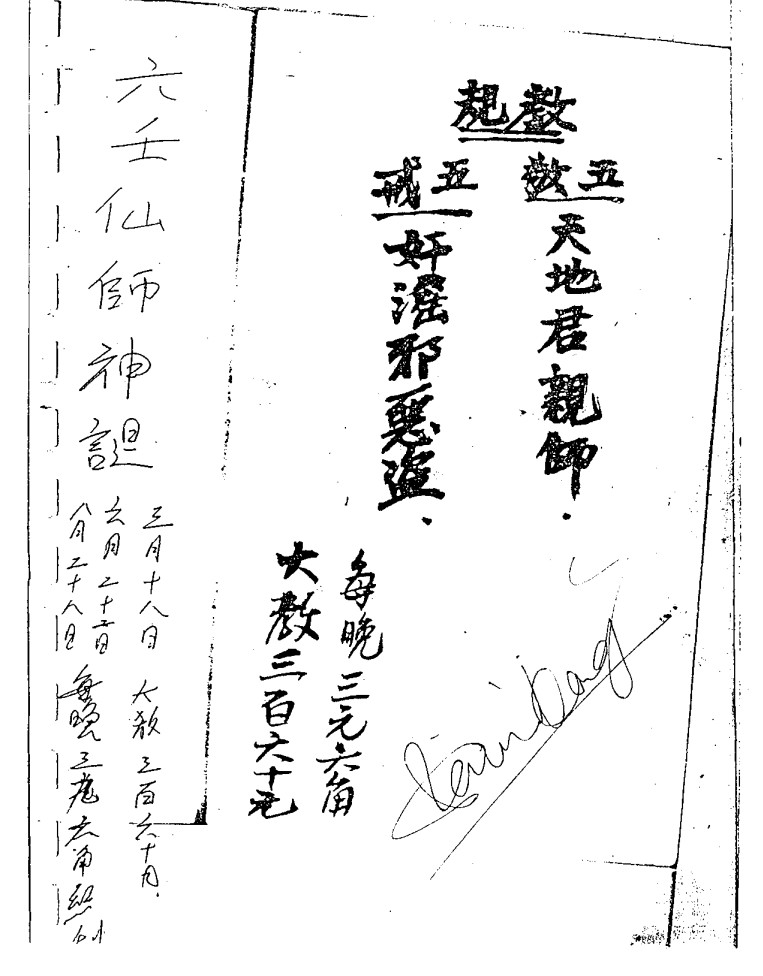 教規
五敬
天地君親師.
五戒
奸淫邪惡盜.
每晚三元六角
大教三百六十元
六壬仙師神誔
三月十八日
六月二十六日
八月二十八日
大教三百六十元.
每晚三元六角